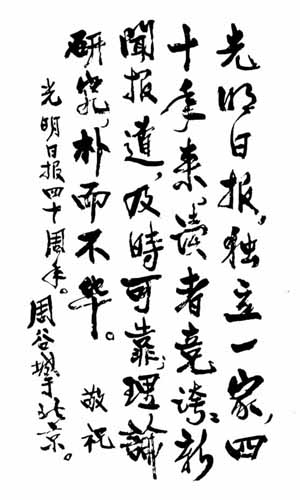 光明日报，独立一家，四
十年来，讀者竞誇：新
聞报道，及時可靠；理論
研究，朴而不华。敬祝
光明日报四十周年。周谷城于北京。